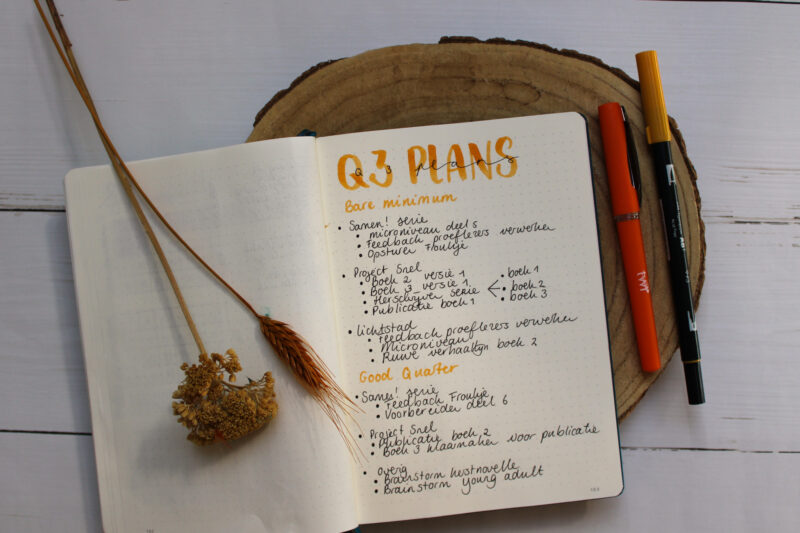 Q3 PLANS
Q3 plans
Bare minimum
• Samen! serie
• microniveau deel 5
• Feedback proeflezers verwerken
• Opsturen Froukje
• Project Snel
• boek 2 versie 1
• boek 3 versie 1
• Herschrijven serie
• boek 1
• boek 2
• boek 3
• Publicatie boek 1
• Lichtstad
• Feedback proeflezers verwerken
• Microniveau
• Ruwe verhaallijn boek 2
Good Quater
• Samen! serie
• Feedback Froukje
• Voorbereiden deel 6
• Project Snel
• Publicatie boek 2
• Boek 3 klaarmaken voor publicatie
• Overig
• Brainstorm kerstnovelle
• Brainstorm young adult
TWIST